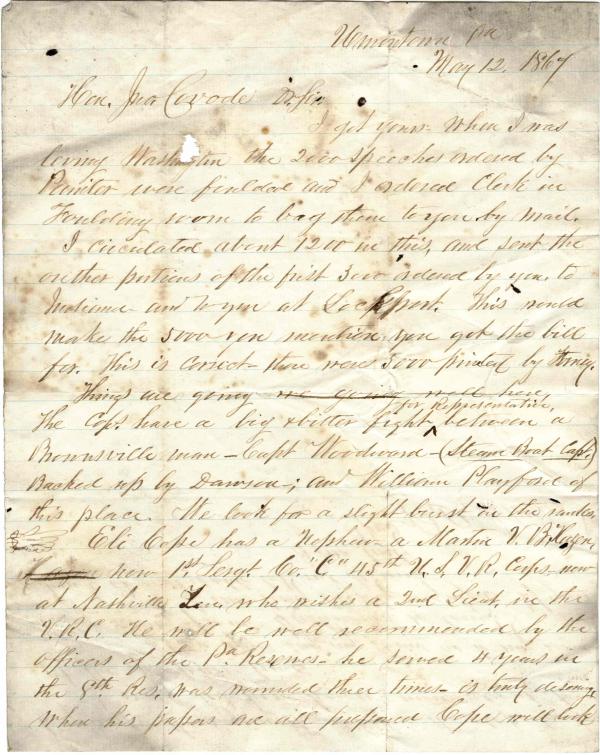 Uniontown Pa
May 12. 1867
Hon. Jno Covode D. Sir
I got yours. When I was
leving Washington the 2000 speeches ordered by
Painter were finished and I ordered Clerk in
Foulding room to bag them to you by mail.
I circulated about 1200 in this, and sent the
other portions of the first 3000 ordered by you, to
Indiana and to you at Lockport. This would
make the 5000 you mention you got the bill
for. This is correct – there were 5000 printed by
Things are going we going well here
The Cops. have a big & bitter fight for Representative, between a
Brownsville man – Capt Woodward – (Steam Boat Capt.)
Backed up by Dawson –; and William Playford of
this place. We look for a slight burst in the
Eli Cope has a Nephew – a Martin V. B.
now 1st Sergt. Co. "C" 45th U.S. V.R. Corps, now
at Nashville Ten. who wishes a 2nd Lieut. in the
V.R.C. He will be well recommended by the
officers of the Pa Reserves – he served 4 years in
the 5th Res. was wounded three times – is truly
When his papers are all prepared Cope will